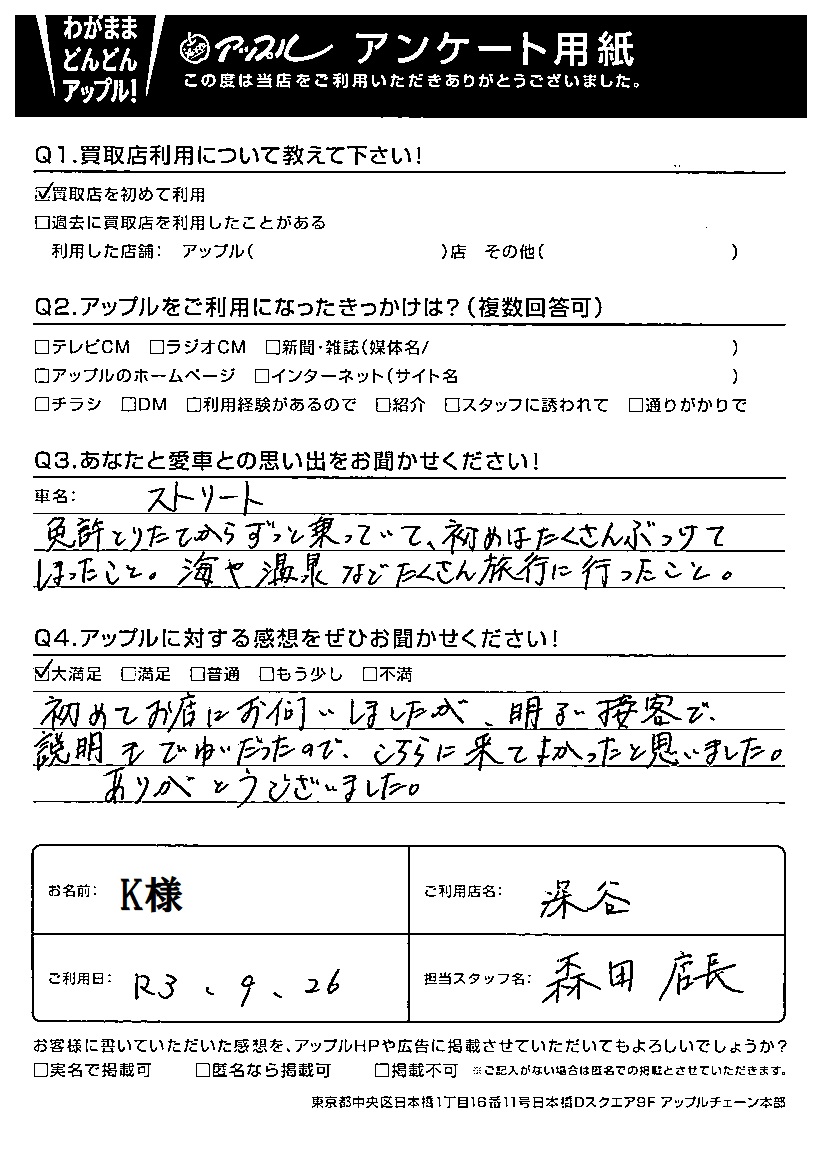 わがまま
どんどん
アップル!
アップル アンケート用紙
この度は当店をご利用いただきありがとうございました。
Q1.買取店利用について教えて下さい!
☑買取店を初めて利用
□過去に買取店を利用したことがある
利用した店舗: アップル( )店 その他( )
Q2.アップルをご利用になったきっかけは?(複数回答可)
□テレビCM □ラジオCM □新聞・雑誌(媒体名/ )
□アップルのホームページ □インターネット(サイト名 )
□チラシ □DM □利用経験があるので □紹介 □スタッフに誘われて □通りがかりで
Q3.あなたと愛車との思い出をお聞かせください!
車名: ストリート
免許とりたてからずっと乗っていて、初めはたくさんぶつけて
しまったこと。海や温泉などたくさん旅行に行ったこと。
Q4.アップルに対する感想をぜひお聞かせください!
☑大満足 □満足 □普通 □もう少し □不満
初めてお店にお伺いしましたが、明るい接客で、
説明もていねいだったので、こちらに来てよかったと思いました。
ありがとうございました。
お名前: K様
ご利用店名: 深谷
ご利用日: R3、9、26
担当スタッフ名: 森田 店長
お客様に書いていただいた感想を、アップルHPや広告に掲載させていただいてもよろしいでしょうか?
□実名で掲載可 □匿名なら掲載可 □掲載不可 ※ご記入がない場合は匿名での掲載とさせていただきます。
東京都中央区日本橋1丁目16番11号日本橋Dスクエア9F アップルチェーン本部